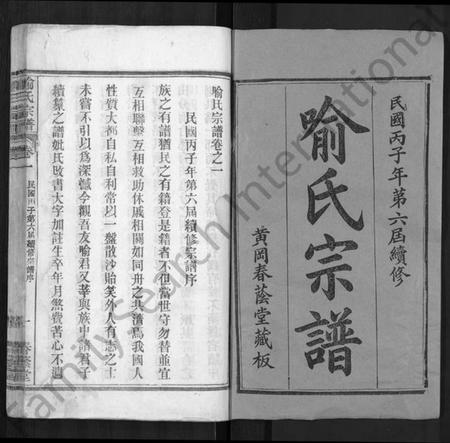 民國丙子年第六屆續修
喻氏宗譜
黃岡春蔭堂藏板
喻氏宗譜卷之一
民國丙子年第六屆續修宗譜序
族之有譜猶民之有籍登是籍者不但當世守勿替並宜
互相聯繫互相救助休戚相關如同舟之共濟焉我國人
性質大都自私自利常以一盤散沙貽笑外人有志之士
未嘗不引以為深憾今觀吾友喻君又莘與族中諸君子
續纂之譜
敗書大字加註生卒年月煞費苦心不遺
喻氏宗譜
卷一
民國丙子第六屆續修宗譜序
一
FamilySearch International